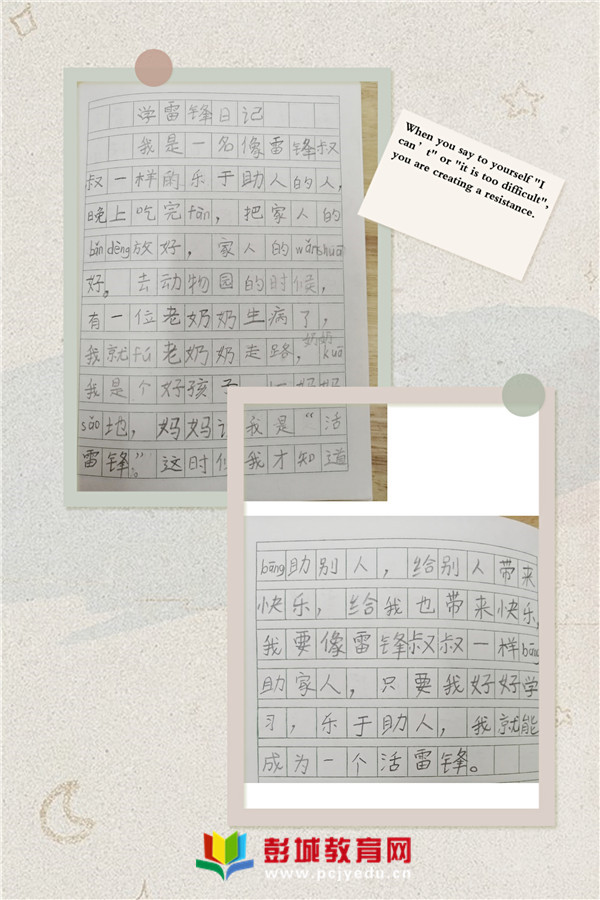 学雷锋日记
我是一名像雷锋叔
叔一样的乐于助人的人，
晚上吃完fàn，把家人的
bǎn dèng放好，家人的wǎn shuā
好。去动物园的时候，
有一位老奶奶生病了，
我就fú老奶奶走路，奶奶kuā
我是个好孩子
sǎo地，妈妈 我是“活
雷锋”。这时候我才知道
When you say to yourself "I
can't" or "it is too difficult",
you are creating a resistance.
bāng助别人，给别人带来
快乐，给我也带来快乐，
我要像雷锋叔叔一样bāng
助家人，只要我好好学
习，乐于助人，我就能
成为一个活雷锋。
彭城教育网
www.pcjyedu.cn